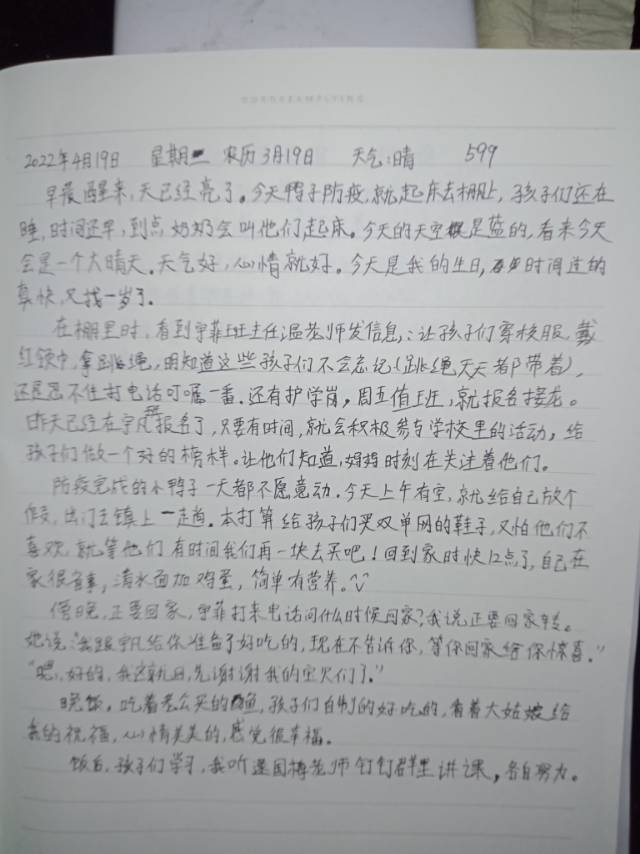 2022年4月19日 星期二 农历3月19日 天气:晴 599
早晨醒来,天已经亮了。今天鸭子防疫,就起床去棚上,孩子们还在
睡,时间还早,到点奶奶会叫他们起床。今天的天空很是蓝的,看来今天
会是一个大晴天。天气好,心情就好。今天是我的生日,时间过的
真快,又找一岁了。
在棚里时,看到宇菲班主任温老师发信息,:让孩子们穿校服,戴
红领巾,拿跳绳,明知道这些孩子们不会忘记(跳绳天天都带着),
还是忍不住打电话叮嘱一番.还有护学岗,周五值班,就报名接龙。
昨天已经在宇凡班报名了,只要有时间,就会积极参与学校里的活动,给
孩子们做一个好的榜样。让他们知道,妈妈时刻在关注着他们。
防疫完成的小鸭子一天都不愿意动.今天上午有空,就给自己放个
假,出门去镇上一走趟.本打算给孩子们买双单网的鞋子,又怕他们不
喜欢,就等他们有时间我们再一块去买吧!回到家时快12点了,自己在
家很省事,清水面加鸡蛋,简单有营养。
傍晚,正要回家,宇菲打来电话问什么时候回家?我说正要回家转。
她说:"我跟宇凡给你准备了好吃的,现在不告诉你,等你回家给你惊喜."
"嗯,好的,我这就回,先谢谢我的宝贝们了."
晚饭,吃着老公买的鱼,孩子们自制的好吃的,看着大姑嫂给
我的祝福,心情美美的,感觉很幸福。
饭后,孩子们学习,我听温国梅老师钉钉群里讲课,各自努力。